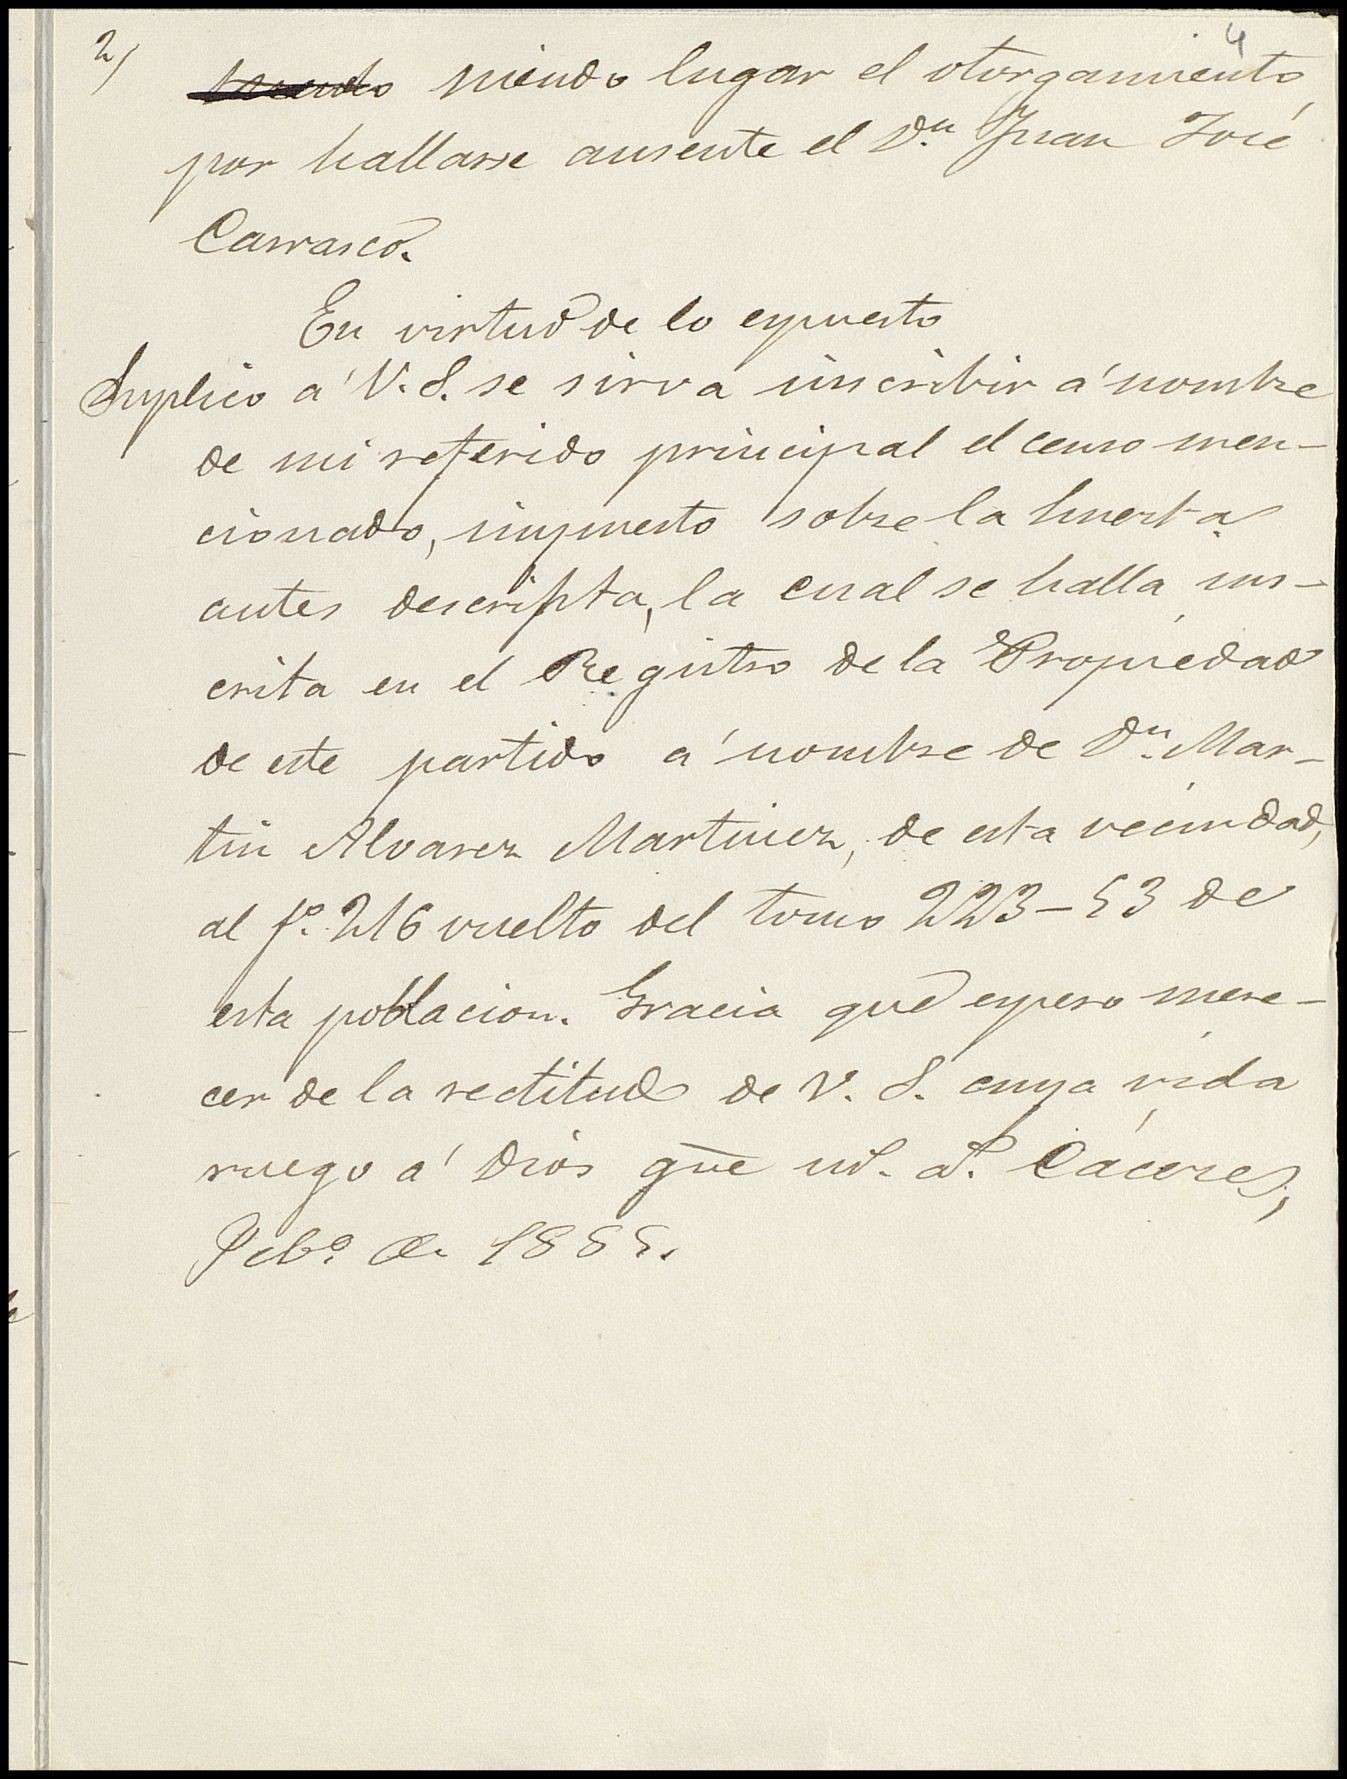 2)
4
niendo lugar el otorgamiento
por hallarse ausente el Dn. Juan José
Carrasco.
En virtud de lo espuesto
Suplico á V. S. se sirva inscribir á nombre
de mi referido principal el censo men-
cionado, impuesto sobre la huerta
antes descripta, la cual se halla ins-
crita en el Registro de la Propiedad
de este partido á nombre de Dn. Mar-
tin Alvarez Martinez, de esta vecindad,
al fº. 216 vuelto del tomo 223-53 de
esta poblacion. Gracia que espero mere-
cer de la rectitud de V. S. cuya vida
ruego á Dios gue ms. as. Cáceres,
Febº. de 1885.